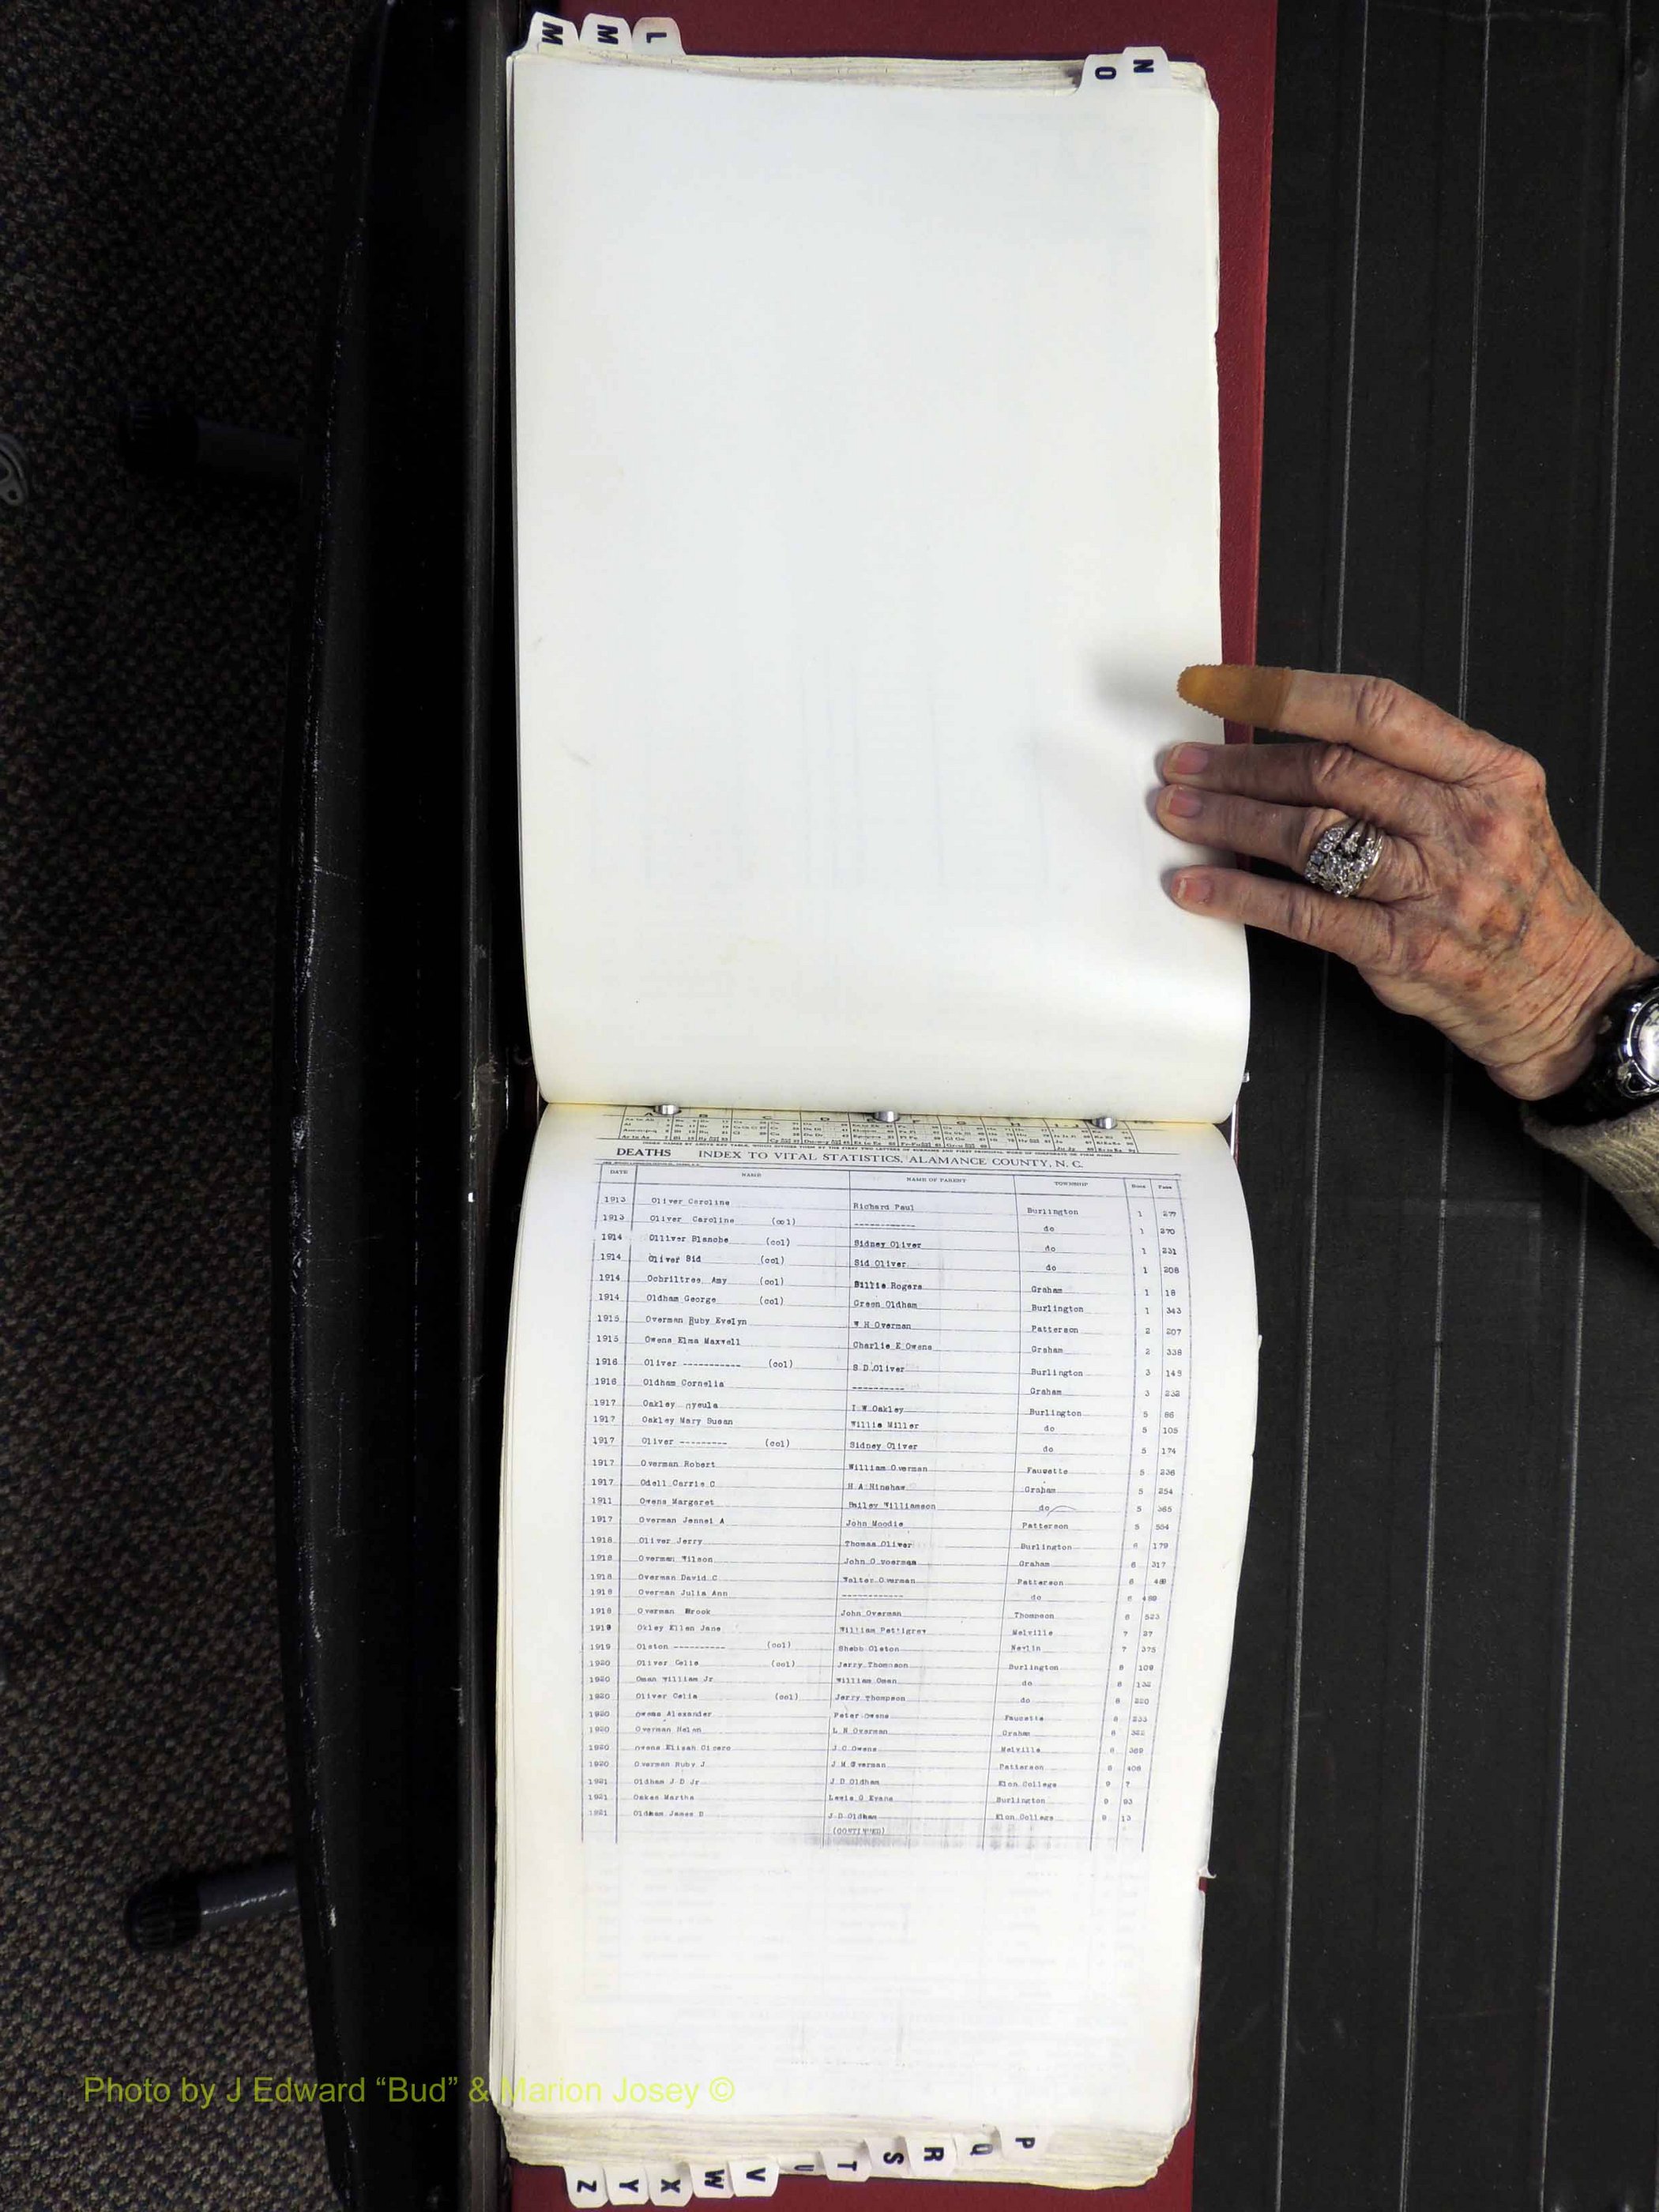 M M L
O N
DEATHS INDEX TO VITAL STATISTICS, ALAMANCE COUNTY, N. C.
DATE NAME NAME OF PARENT TOWNSHIP Book Page
1913 Oliver Caroline Richard Paul Burlington 1 277
1913 Oliver Caroline (col) ------------ do 1 270
1914 Olliver Blanche (col) Sidney Oliver do 1 231
1914 Oliver Sid (col) Sid Oliver do 1 208
1914 Ochriltree Amy (col) Billie Rogers Graham 1 18
1914 Oldham George (col) Green Oldham Burlington 1 343
1915 Overman Ruby Evelyn W H Overman Patterson 2 207
1915 Owens Elma Maxwell Charlie E Owens Graham 2 338
1916 Oliver ----------- (col) S D Oliver Burlington 3 145
1916 Oldham Cornelia ---------- Graham 3 232
1917 Oakley nyeula I W Oakley Burlington 5 86
1917 Oakley Mary Susan Willie Miller do 5 105
1917 Oliver --------- (col) Sidney Oliver do 5 174
1917 Overman Robert William Overman Faucette 5 236
1917 Odell Carrie C H A Hinshaw Graham 5 254
1911 Owens Margaret Bailey Williamson do 5 365
1917 Overman Jennei A John Moodie Patterson 5 554
1918 Oliver Jerry Thomas Oliver Burlington 6 179
1918 Overman Wilson John Overman Graham 6 317
1918 Overman David C Walter Overman Patterson 6
1918 Overman Julia Ann ------------ do 6 489
1918 Overman Brook John Overman Thompson 6 523
1919 Okley Ellen Jane William Pettigrew Melville 7 27
1919 Olston ---------- (col) Shebb Olston Newlin 7 375
1920 Oliver Celie (col) Jerry Thompson Burlington 8 109
1920 Oman William Jr William Oman do 8 132
1920 Oliver Celia (col) Jerry Thompson do 8 220
1920 Owens Alexander Peter Owens Faucette 8 233
1920 Overman Helen L H Overman Graham 8 322
1920 Owens Elisah Cicero J C Owens Melville 8 369
1920 Overman Ruby J J H Overman Patterson 8 408
1921 Oldham J D Jr J D Oldham Elon College 9 7
1921 Oakes Martha Lewis G Evans Burlington 9 93
1921 Oldham James D J D Oldham Elon College 9 13
(CONTINUED)
Photo by J Edward “Bud” & Marion Josey ©
Z Y X W V U T S R Q P